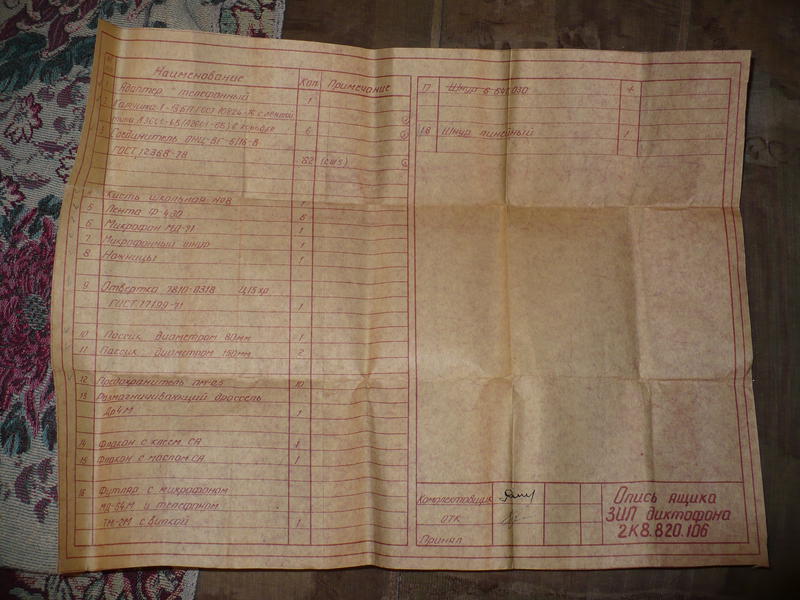 Наименование Кол Примечание
Адаптер телефонный 1
6
Соединитель ОНЦ-ВГ-5/16-В
ГОСТ 12368-78
4 Кисть школьная №8 1
5 Лента Ф-430 6
6 Микрофон МД-71 1
7 Микрофонный шнур 1
8 Ножницы 1
9 Отвертка 7810-0318
ГОСТ 17199-71 1
10 Пассик диаметром 80мм 1
11 Пассик диаметром 150мм 2
12 Предохранитель ПМ-0,5 10
13 Размагничивающий дроссель
Др4М 1
14 Флакон с клеем СА 1
15 Флакон с маслом СА 1
16 Футляр с микрофоном
МД-64М и телефоном
ТМ-2М с вилкой 1
17 Шнур
18 Шнур линейный 1
Комплектовщик
ОТК
Принял
Опись ящика
ЗИП диктофона
2К8.820.106